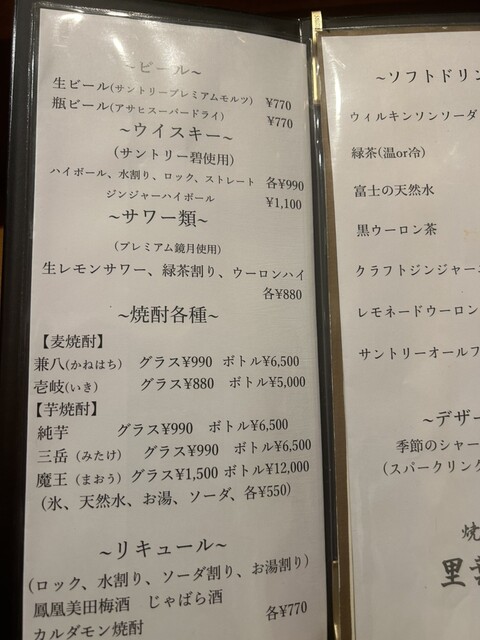 ~ビール~
生ビール(サントリープレミアムモルツ) ¥770
瓶ビール(アサヒスーパードライ) ¥770
~ウイスキー~
(サントリー碧使用)
ハイボール、水割り、ロック、ストレート 各¥990
ジンジャーハイボール ¥1,100
~サワー類~
(プレミアム鏡月使用)
生レモンサワー、緑茶割り、ウーロンハイ
各¥880
~焼酎各種~
【麦焼酎】
兼八(かねはち) グラス¥990 ボトル¥6,500
壱岐(いき) グラス¥880 ボトル¥5,000
【芋焼酎】
純芋 グラス¥990 ボトル¥6,500
三岳(みたけ) グラス¥990 ボトル¥6,500
魔王(まおう) グラス¥1,500 ボトル¥12,000
(氷、天然水、お湯、ソーダ、各¥550)
~リキュール~
(ロック、水割り、ソーダ割り、お湯割り)
鳳凰美田梅酒 じゃばら酒
カルダモン焼酎 各¥770
~ソフトドリン
ウィルキンソンソーダ
緑茶(温or冷)
富士の天然水
黒ウーロン茶
クラフトジンジャー
レモネードウーロン
サントリーオールフ
~デザー
季節のシャー
(スパークリング
焼
里